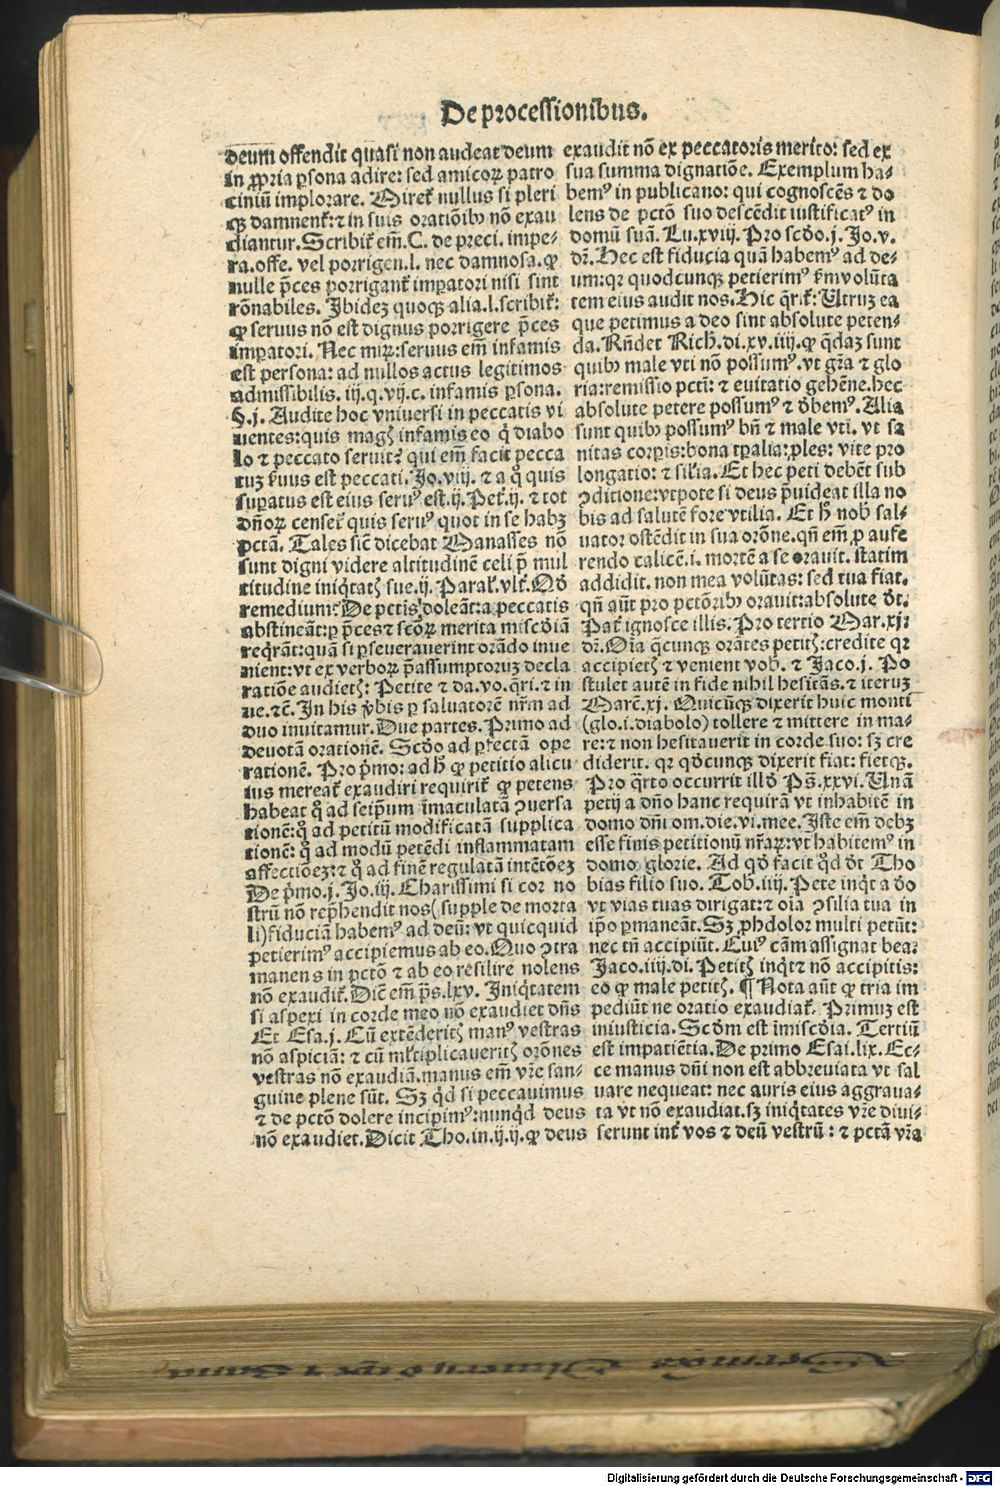 De processionibus.
deum offendit quasi non audeat deum
in ꝓpria ꝑsona adire: sed amicoꝝ patro
ciniū implorare. Miret᷑ nullus si pleri
qꝫ damnent᷑: ⁊ in suis oratiōibꝰ nō exau
diantur. Scribit᷑ em̄. C. de preci. impe⸗
ra. offe. vel porrigen. l. nec damnosa. ꝙ
nulle p̄ces porrigant᷑ imꝑatori nisi sint
rōnabiles. Ibidez quoqꝫ alia. l. scribit᷑:
ꝙ seruus nō est dignus porrigere p̄ces
imꝑatori. Nec miꝝ: seruus em̄ infamis
est persona: ad nullos actus legitimos
admissibilis. iij. q. vij. c. infamis ꝑsona.
§. j. Audite hoc vniuersi in peccatis vi
uentes: quis magꝭ infamis eo q̇ diabo
lo ⁊ peccato seruit? qui em̄ facit pecca
tuꝫ ẜuus est peccati. Jo. viij. ⁊ a q̊ quis
suꝑatus est eius seruꝰ est. ij. Pet᷑. ij. ⁊ tot
dn̄oꝝ censet᷑ quis seruꝰ quot in se habꝫ
pctā. Tales sic̄ dicebat Manasses nō
sunt digni videre altitudinē celi p̄ mul
titudine iniq̇tatꝭ sue. ij. Paral᷑. vlt᷑. Qd̄
remedium? De pctis doleāt: a peccatis
abstineāt: ꝑ p̄ces ⁊ sctōꝝ merita miscd̓iā
req̇rāt: quā si ꝑseuerauerint orādo inue
nient: vt ex verboꝝ p̄assumptoruꝫ decla
ratiōe audietꝭ: Petite ⁊ da. vo. q̄ri. ⁊ in
ue. ⁊c̄. In his ṽbis ꝑ saluatorē nr̄m ad
duo inuitamur. Due partes. Primo ad
deuotā orationē. Scd̓o ad ꝑfectā ope
rationē. Pro p̓mo: ad hͦ ꝙ petitio alicu
ius mereat᷑ exaudiri requirit᷑ ꝙ petens
habeat q̊ ad seip̄um īmaculatā ꝯuersa
tionē: q̊ ad petitū modificatā supplica
tionē: q̊ ad modū petēdi inflammatam
affectiōeꝫ: ⁊ q̊ ad finē regulatā intētōeꝫ
De p̓mo. j. Jo. iij. Charissimi si cor no
strū nō rep̄hendit nos (supple de morta
li) fiduciā habemꝰ ad deū: vt quicquid
petierimꝰ accipiemus ab eo. Quo ꝯtra
manens in pctō ⁊ ab eo resilire nolens
nō exaudit᷑. Dic̄ em̄ ps̄. lxv. Iniq̇tatem
si aspexi in corde meo nō exaudiet dn̄s
Et Esa. j. Cū extēderitꝭ manꝰ vestras
nō aspiciā: ⁊ cū ml̓tiplicaueritꝭ orōnes
vestras nō exaudiā. manus em̄ vr̄e san⸗
guine plene sūt. Sꝫ q̇d si peccauimus
⁊ de pctō dolere incipimꝰ: nunq̇d deus
nō exaudiet. Dicit Tho. in. ij. ij. ꝙ deus
exaudit nō ex peccatoris merito: sed ex
sua summa dignatiōe. Exemplum ha⸗
bemꝰ in publicano: qui cognoscēs ⁊ do
lens de pctō suo descēdit iustificatꝰ in
domū suā. Lu. xviij. Pro scd̓o. j. Jo. v.
dr̄. Hec est fiducia quā habemꝰ ad de⸗
um: qꝛ quodcunqꝫ petierimꝰ ẜm volūta
tem eius audit nos. Hic q̄rit᷑: Utruꝫ ea
que petimus a deo sint absolute peten⸗
da. Rn̄det Rich. di. xv. iiij. ꝙ q̄daꝫ sunt
quibꝰ male vti nō possumꝰ. vt gr̄a ⁊ glo
ria: remissio pcti: ⁊ euitatio gehēne. hec
absolute petere possumꝰ ⁊ d̓bemꝰ. Alia
sunt quibꝰ possumꝰ bn̄ ⁊ male vti. vt sa
nitas corꝑis: bona tꝑalia: ꝓles: vite pro
longatio: ⁊ sil̓ia. Et hec peti debēt sub
ꝯditione: vtpote si deus p̄uideat illa no
bis ad salutē fore vtilia. Et hͦ nob̄ sal⸗
uator ostēdit in sua orōne. qn̄ em̄ ꝓ aufe
rendo calicē. i. mortē a se orauit. statim
addidit. non mea volūtas: sed tua fiat.
qn̄ aūt pro pctōribꝰ orauit: absolute dt̓.
Pat᷑ ignosce illis. Pro tertio Mar. xj:
dr̄. Oīa q̄cunqꝫ orātes petitꝭ: credite qꝛ
accipietꝭ ⁊ venient vob̄. ⁊ Jaco. j. Po
stulet autē in fide nihil hesitās. ⁊ iteruꝫ
Marc̄. xj. Quicūqꝫ dixerit huic monti
(glo. i. diabolo) tollere ⁊ mittere in ma⸗
re: ⁊ non hesitauerit in corde suo: sꝫ cre
diderit. qꝛ qd̓cunqꝫ dixerit fiat: fietqꝫ.
Pro q̇rto occurrit illd̓ Ps̄. xxvi. Unā
petij a dn̄o hanc requirā vt inhabitē in
domo dn̄i om. die. vi. mee. Iste em̄ debꝫ
esse finis petitionū nr̄aꝝ: vt habitemꝰ in
domo glorie. Ad qd̓ facit q̇d dt̓ Tho
bias filio suo. Tob. iiij. Pete inq̇t a d̓o
vt vias tuas dirigat: ⁊ oīa ꝯsilia tua in
ip̄o ꝑmaneāt. Sꝫ ꝓhdolor multi petūt:
nec tn̄ accipiūt. Cuiꝰ cām assignat bea.
Jaco. iiij. di. Petitꝭ inq̇t ⁊ nō accipitis:
eo ꝙ male petitꝭ. ¶ Nota aūt ꝙ tria im
pediūt ne oratio exaudiat᷑. Primuꝫ est
iniusticia. Scd̓m est īmiscd̓ia. Tertiū
est impatiētia. De primo Esai. lix. Ec⸗
ce manus dn̄i non est abbreuiata vt sal
uare nequeat: nec auris eius aggraua⸗
ta vt nō exaudiat. sꝫ iniq̇tates vr̄e diui⸗
serunt int᷑ vos ⁊ deū vestrū: ⁊ pctā vr̄a
Digitalisierung gefördert durch die Deutsche Forschungsgemeinschaft - DFG